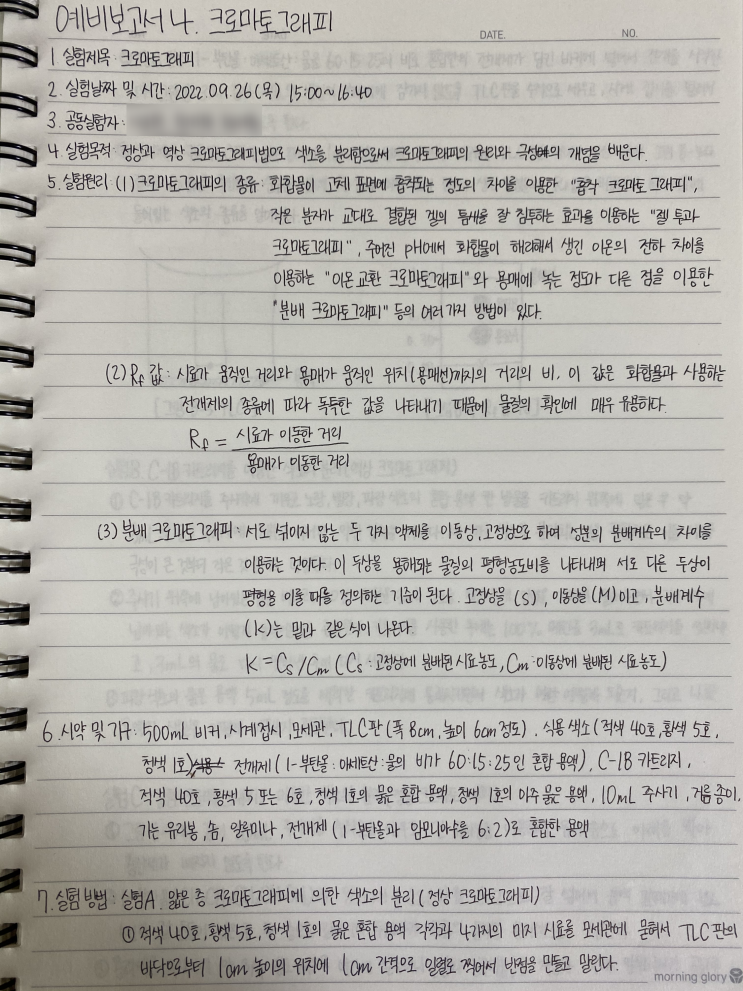 예비보고서 나. 크로마토그래피
DATE. NO.
1. 실험제목 : 크로마토그래피
2. 실험날짜 및 시간 : 2022.09.26(목) 15:00~16:40
3. 공동실험자 :
4. 실험목적 : 정상과 역상 크로마토그래피법으로 색소를 분리함으로써 크로마토그래피의 원리와 극성의 개념을 배운다.
5. 실험원리 (1) 크로마토그래피의 종류 : 화합물이 고체 표면에 흡착되는 정도의 차이를 이용한 "흡착 크로마토그래피",
작은 분자가 교대로 결합된 겔의 틈새를 잘 침투하는 효과를 이용하는 "겔 투과
크로마토그래피", 주어진 pH에서 화합물이 해리해서 생긴 이온의 전하 차이를
이용하는 "이온교환 크로마토그래피"와 용매에 녹는 정도가 다른 점을 이용한
"분배 크로마토그래피" 등의 여러가지 방법이 있다.
(2) Rf 값 : 시료가 움직인 거리와 용매가 움직인 위치(용매선)까지의 거리의 비. 이 값은 화합물과 사용하는
전개제의 종류에 따라 독특한 값을 나타내기 때문에 물질의 확인에 매우 유용하다.
Rf = 시료가 이동한 거리
용매가 이동한 거리
(3) 분배 크로마토그래피 : 서로 섞이지 않는 두 가지 액체를 이동상, 고정상으로 하여 성분의 분배계수의 차이를
이용하는 것이다. 이 두상을 용해되는 물질의 평형농도비를 나타내며 서로 다른 두상이
평형을 이룰 때를 정의하는 기준이 된다. 고정상을 (S), 이동상을 (M)이고, 분배계수
(K)는 밑과 같은 식이 나온다.
K = Cs/Cm (Cs : 고정상에 분배된 시료농도, Cm : 이동상에 분배된 시료농도)
6. 시약 및 기구 : 500mL 비커, 시계접시, 모세관, TLC판 (폭 8cm, 높이 6cm 정도). 식용색소 (적색 40호, 황색 5호,
청색 1호) 전개제 (1-부탄올 : 아세트산 : 물의 비가 60:15:25인 혼합 용액), C-18 카트리지,
적색 40호, 황색 5 또는 6호, 청색 1호의 묽은 혼합 용액, 청색 1호의 아주 묽은 용액, 10mL 주사기, 거름종이,
가는 유리봉, 솜, 알루미나, 전개제 (1-부탄올과 암모니아수를 6:2)로 혼합한 용액
7. 실험 방법 : 실험A. 얇은 층 크로마토그래피에 의한 색소의 분리 (정상 크로마토그래피)
① 적색 40호, 황색 5호, 청색 1호의 묽은 혼합 용액 각각과 4가지의 미지 시료를 모세관에 묻혀서 TLC 판의
바닥으로부터 1cm 높이의 위치에 1cm 간격으로 일렬로 찍어서 반점을 만들고 말린다.
morning glory